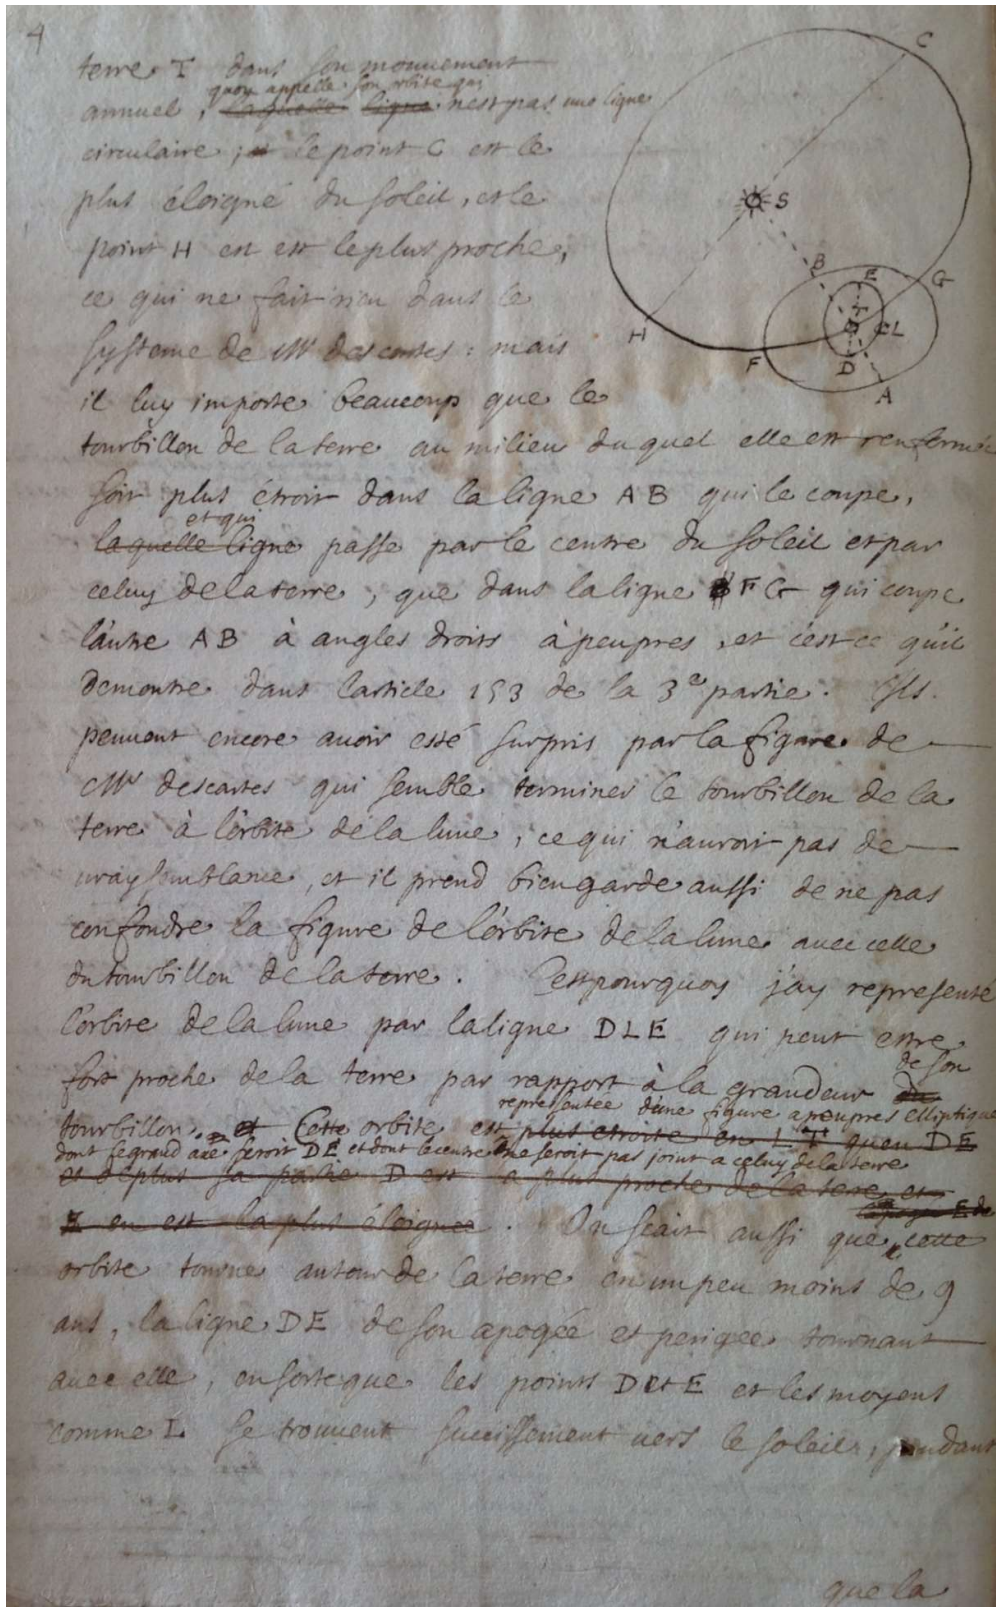 4
terre T dans son mouvement
quon appelle son orbite qui
annuel, laquelle ligne n'est pas une ligne
circulaire; et le point C est le
plus éloigné du soleil, et le
point H en est le plus proche,
ce qui ne fait rien dans le
systeme de Mr descartes: mais
il luy importe beaucoup que le
tourbillon de la terre au milieu du quel elle est renfermée
soit plus étroit dans la ligne AB qui le coupe,
et qui
laquelle ligne passe par le centre du soleil et par
celuy de la terre, que dans la ligne FG qui coupe
l'autre AB à angles droits à peu pres, et c'est ce qu'il
demontre dans l'article 153 de la 3e partie. Ils
peuvent encore avoir esté surpris par la figure de
Mr descartes qui semble terminer le tourbillon de la
terre à l'orbite de la lune, ce qui n'auroit pas de
vraysemblance, et il prend bien garde aussi de ne pas
confondre la figure de l'orbite de la lune avec celle
du tourbillon de la terre. C'est pourquoy j'ay representé
l'orbite de la lune par la ligne DLE qui peut estre
de son
fort proche de la terre par rapport à la grandeur du
representée d'une figure a peu pres elliptique
tourbillon. et Cette orbite est plus etroite en LT qu'en DE
dont le grand axe seroit DE et dont le centre ne seroit pas joint a celuy de la terre
et de plus sa partie D est plus proche de la terre et
E de
E en est la plus éloignée. On sçait aussi que cette
orbite tourne autour de la terre en un peu moins de 9
ans, la ligne DE de son apogée et perigée tournant
avec elle, en sorte que les points D et E et les moyens
comme L se trouvent vers le soleil, pendant
que la
C
S
B
E
G
H
T
L
F
D
A